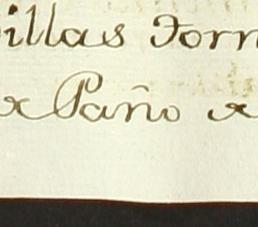 illas Forn
Paño